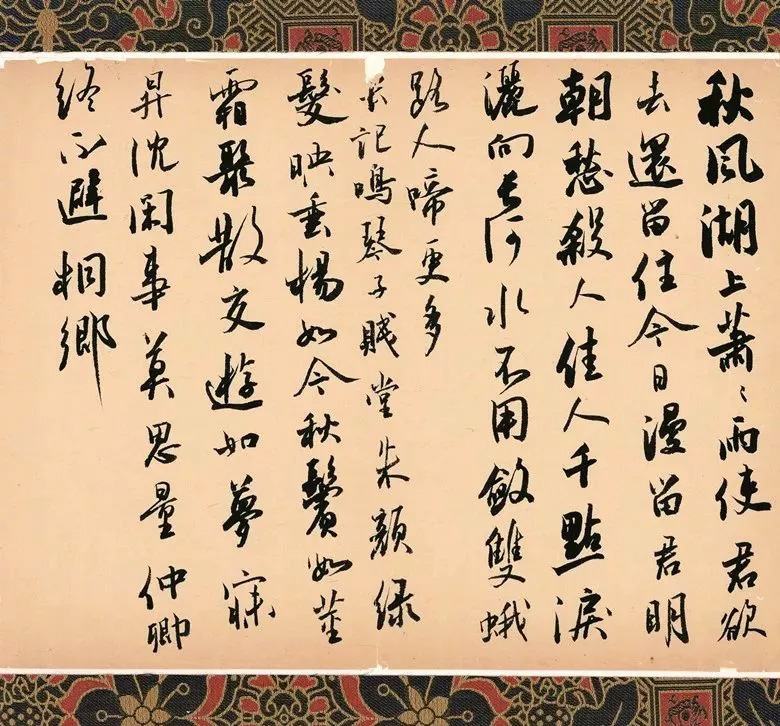 秋風湖上蕭〻雨使君欲
去還留住今日漫留君明
朝愁殺人佳人千點淚
灑向長河水不用斂雙蛾
路人啼更多
長記鳴琴子賤堂朱顏綠
髮映垂楊如今秋鬢數莖
霜聚散交遊如夢寐
昇沈閑事莫思量仲卿
終不避桐鄉